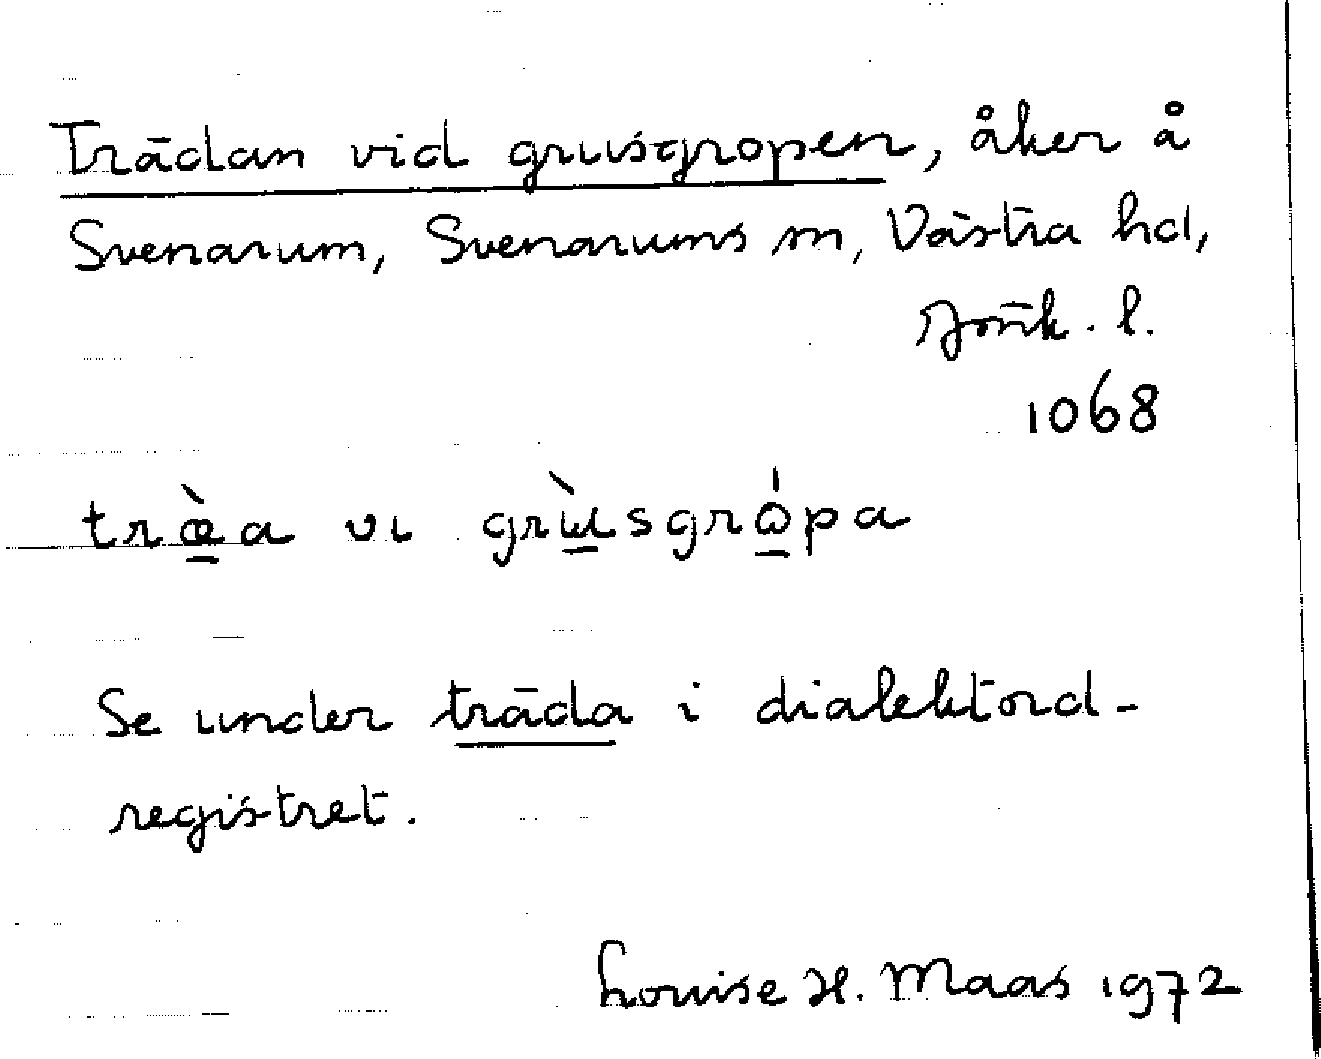 Trädan vid grusgropen, åker å
Svenarum, Svenarums sn, Västra hd,
Jönk. l.
1068
træ̀a vɩ grɯ̀sgrɷ́pa
Se under träda i dialektord-
registret.
Louise H. Maas 1972